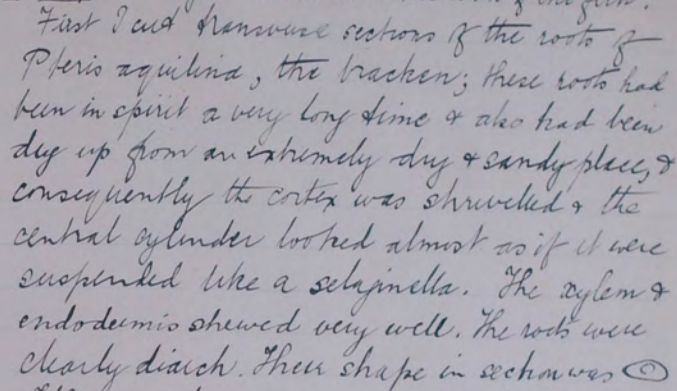 of the fern.
First I cut transverse sections of the roots of
Pteris aquilina, the bracken; these roots had
been in spirit a very long time & also had been
dug up from an extremely dry & sandy place, &
consequently the cortex was shrivelled & the
central cylinder looked almost as if it were
suspended like a selaginella. The xylem &
endodermis shewed very well. The roots were
clearly diarch. Their shape in section was